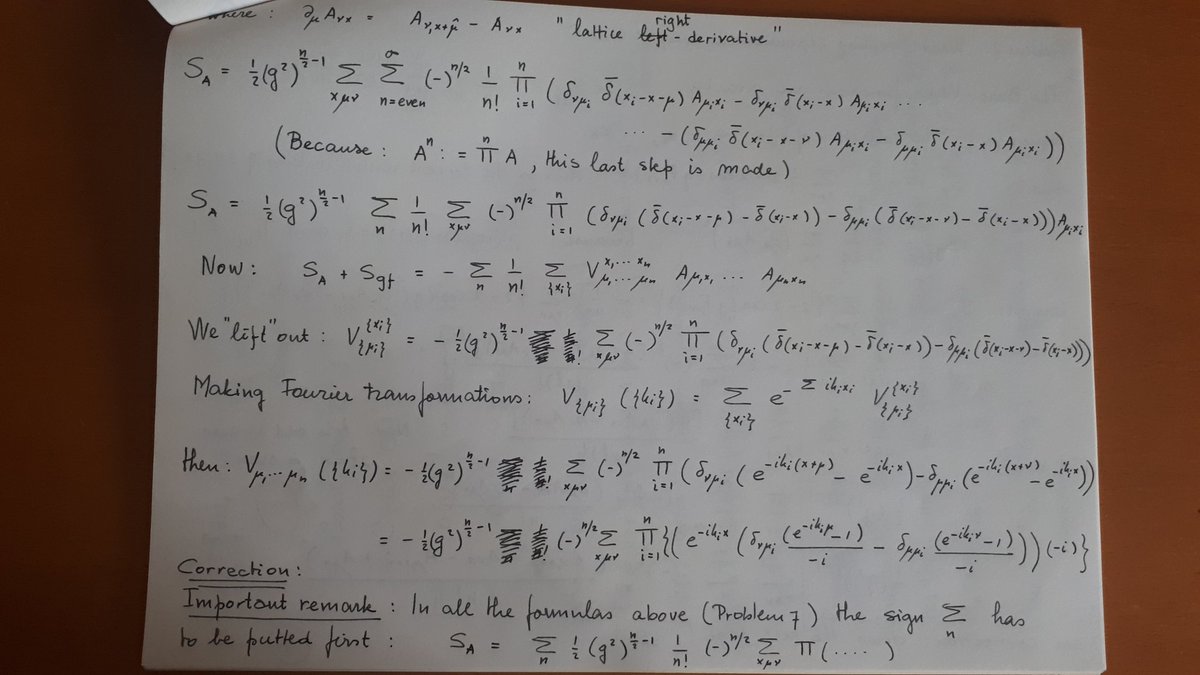 where : ∂_μ A_νx = A_ν,x+μ̂ − A_νx "lattice right-derivative"
S_A = ½(g²)^{n/2 −1} Σ_{xμν} Σ^∞_{n=even} (−)^{n/2} 1/n! ∏^n_{i=1} ( δ_{νμ_i} δ̄(x_i−x−μ) A_{μ_i x_i} − δ_{νμ_i} δ̄(x_i−x) A_{μ_i x_i} ...
... − (δ_{μμ_i} δ̄(x_i−x−ν) A_{μ_i x_i} − δ_{μμ_i} δ̄(x_i−x) A_{μ_i x_i}))
(Because : A^n := ∏^n A , this last step is made)
S_A = ½(g²)^{n/2 −1} Σ_n 1/n! Σ_{xμν} (−)^{n/2} ∏^n_{i=1} (δ_{νμ_i} (δ̄(x_i−x−μ) − δ̄(x_i−x)) − δ_{μμ_i} (δ̄(x_i−x−ν) − δ̄(x_i−x))) A_{μ_i x_i}
Now : S_A + S_gf = − Σ_n 1/n! Σ_{{x_i}} V^{x_1 ... x_n}_{μ_1 ... μ_n} A_{μ_1 x_1} ... A_{μ_n x_n}
We "lift" out : V^{{x_i}}_{{μ_i}} = − ½(g²)^{n/2 −1} Σ_{xμν} (−)^{n/2} ∏^n_{i=1} (δ_{νμ_i} (δ̄(x_i−x−μ) − δ̄(x_i−x)) − δ_{μμ_i} (δ̄(x_i−x−ν) − δ̄(x_i−x)))
Making Fourier transformations : V_{{μ_i}} ({k_i}) = Σ_{{x_i}} e^{− Σ ik_i x_i} V^{{x_i}}_{{μ_i}}
then : V_{μ_1 ... μ_n} ({k_i}) = − ½(g²)^{n/2 −1} Σ_{xμν} (−)^{n/2} ∏^n_{i=1} (δ_{νμ_i} (e^{−ik_i(x+μ)} − e^{−ik_i x}) − δ_{μμ_i} (e^{−ik_i(x+ν)} − e^{−ik_i x}))
= − ½(g²)^{n/2 −1} (−)^{n/2} Σ_{xμν} ∏^n_{i=1} {( e^{−ik_i x} (δ_{νμ_i} (e^{−ik_i μ} −1)/−i − δ_{μμ_i} (e^{−ik_i ν} −1)/−i )) (−i)}
Correction :
Important remark : In all the formulas above (Problem 7) the sign Σ_n has
to be putted first : S_A = Σ_n ½(g²)^{n/2 −1} 1/n! (−)^{n/2} Σ_{xμν} ∏ (....)